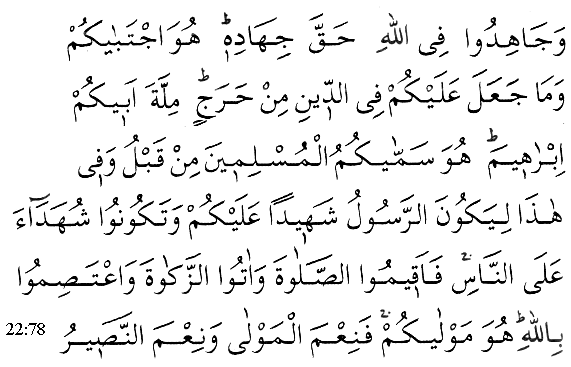 وَجَاهِدُوا فِى اللّٰهِ حَقَّ جِهَادِهٖۜ هُوَ اجْتَبٰيكُمْ
وَمَا جَعَلَ عَلَيْكُمْ فِى الدّٖينِ مِنْ حَرَجٍۜ مِلَّةَ اَبٖيكُمْ
اِبْرٰهٖيمَۜ هُوَ سَمّٰيكُمُ الْمُسْلِمٖينَ مِنْ قَبْلُ وَفٖى
هٰذَا لِيَكُونَ الرَّسُولُ شَهٖيدًا عَلَيْكُمْ وَتَكُونُوا شُهَدَٓاءَ
عَلَى النَّاسِۚ فَاَقٖيمُوا الصَّلٰوةَ وَاٰتُوا الزَّكٰوةَ وَاعْتَصِمُوا
بِاللّٰهِۜ هُوَ مَوْلٰيكُمْۚ فَنِعْمَ الْمَوْلٰى وَنِعْمَ النَّصٖيرُ 22:78